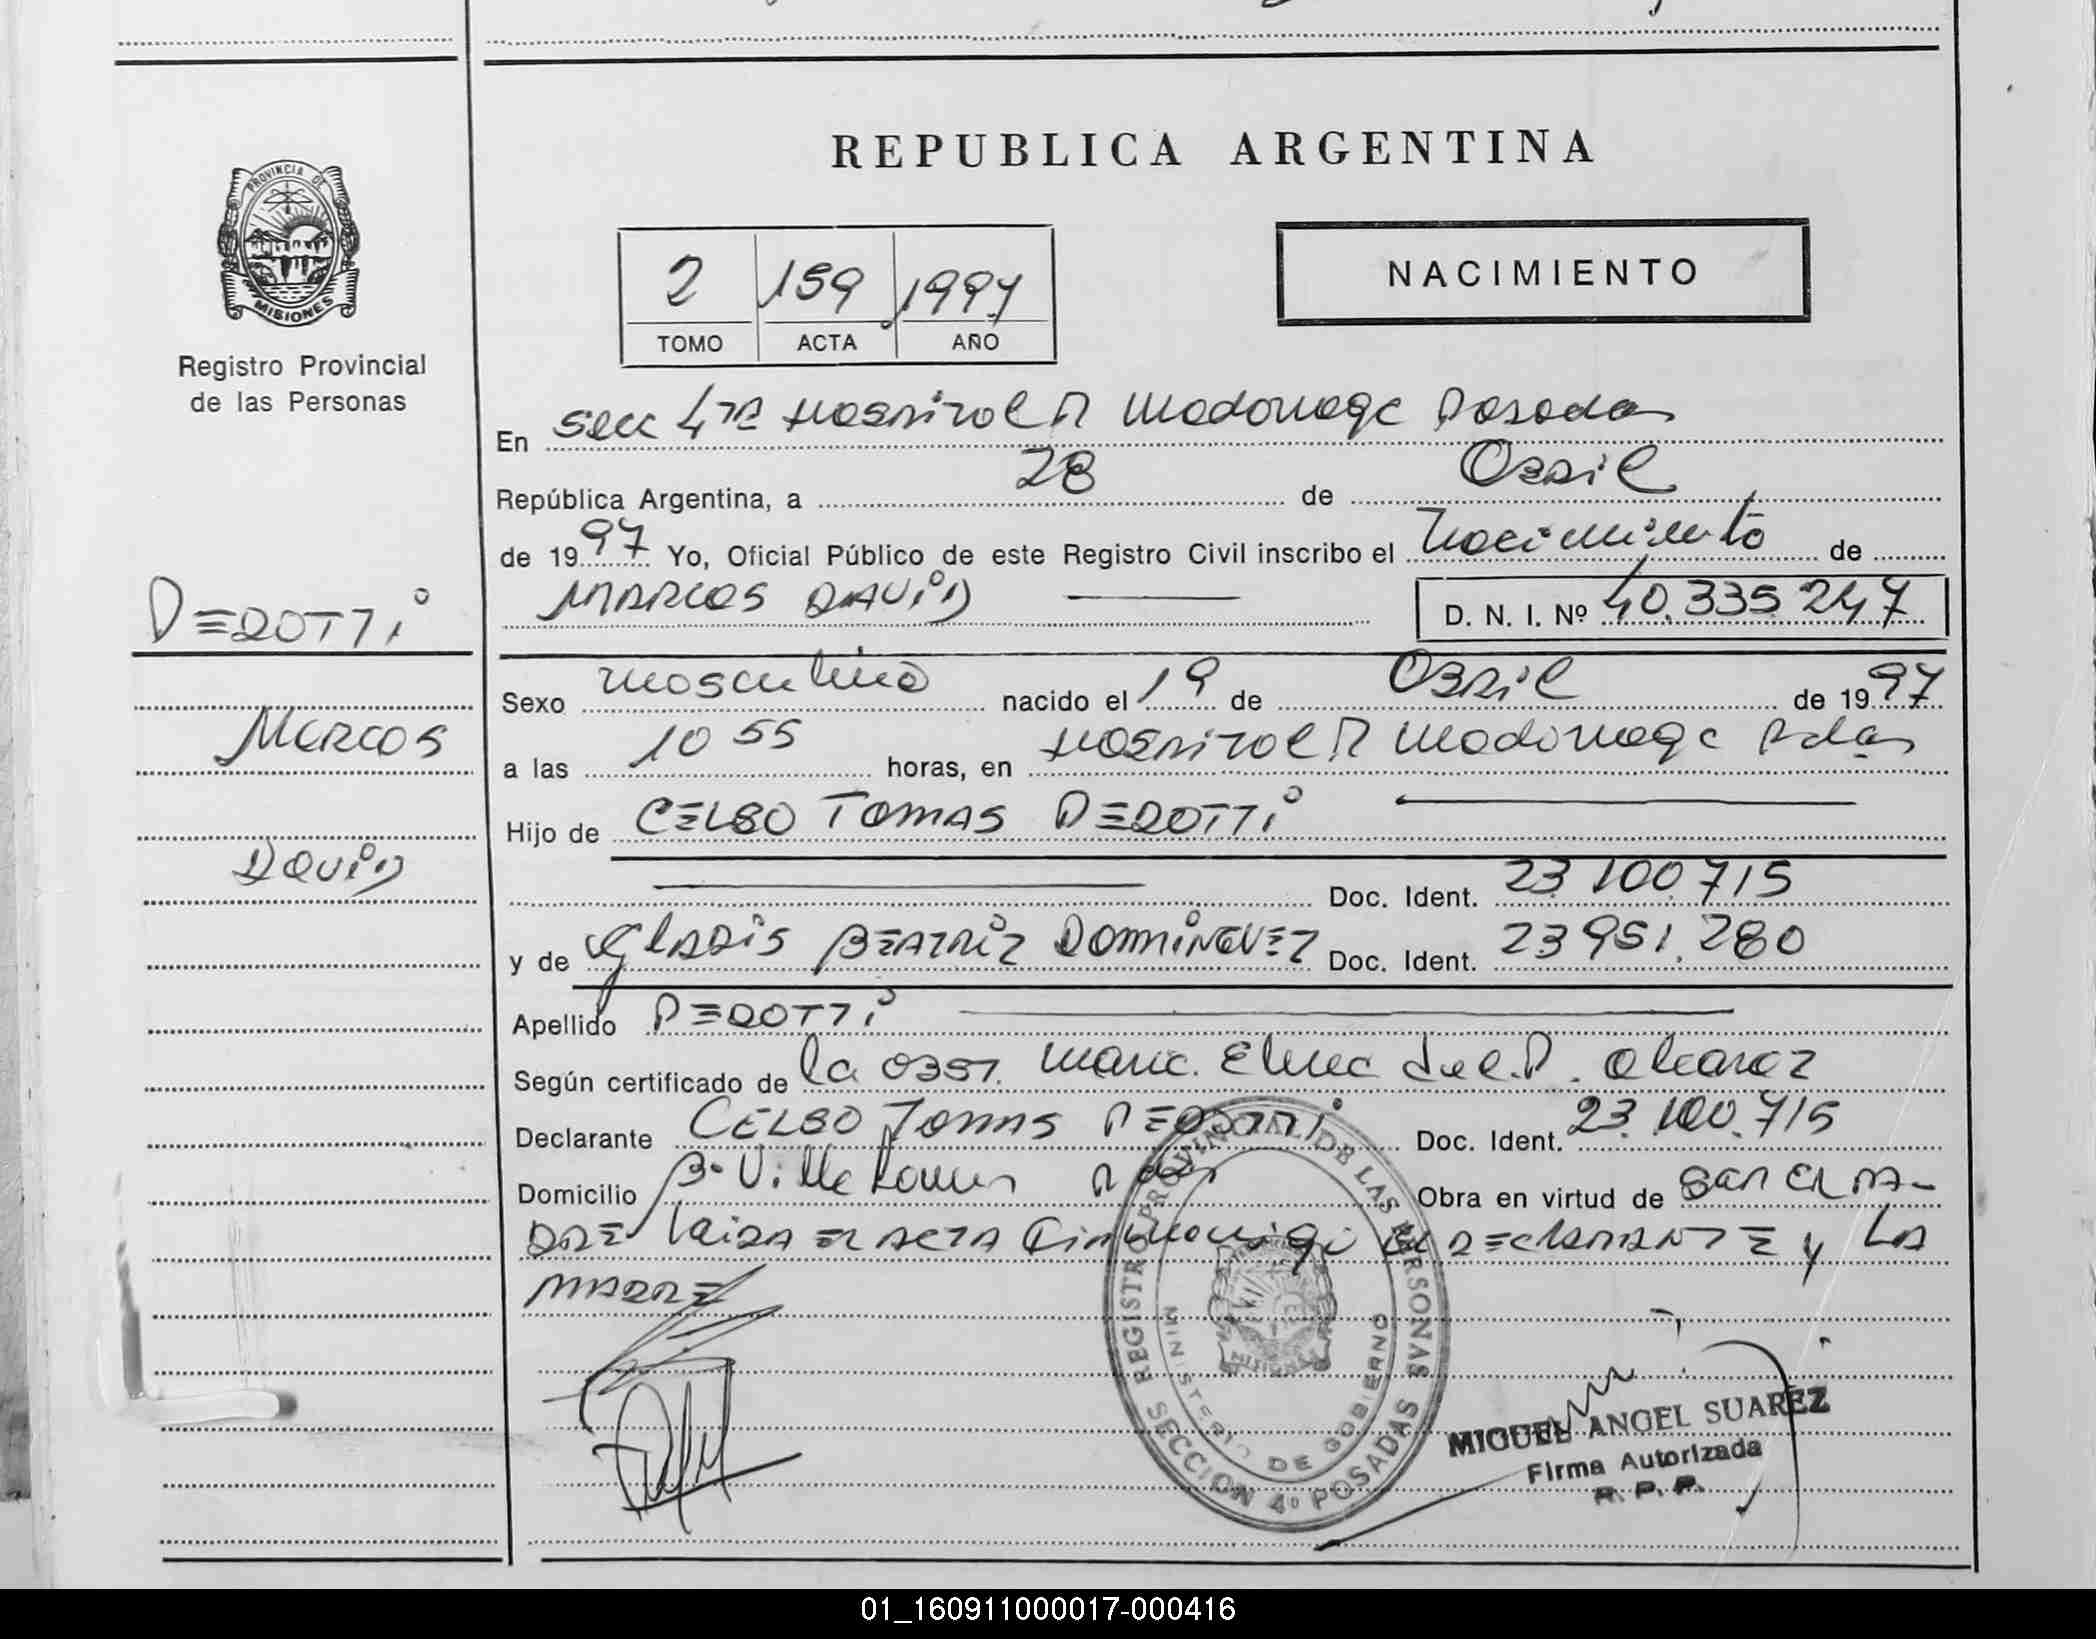 REPUBLICA ARGENTINA
PROVINCIA DE MISIONES
Registro Provincial
de las Personas
2 159 1997
TOMO ACTA AÑO
NACIMIENTO
En Secc 4ta Hospital R Madariaga Posadas
República Argentina, a 28 de Abril
de 1997 Yo, Oficial Público de este Registro Civil inscribo el Nacimiento de
MARCOS DAVID D. N. I. Nº 40.335.247
Sexo masculino nacido el 19 de Abril de 1997
a las 10 55 horas, en Hospital R Madariaga Pdas
Hijo de CELSO TOMAS DEDOTTI
Doc. Ident. 23.100.715
y de GLADIS BEATRIZ DOMINGUEZ Doc. Ident. 23951.280
Apellido DEDOTTI
Según certificado de la Obst. Maria Elena del P. Alcaraz
Declarante CELSO TOMAS DEDOTTI Doc. Ident. 23.100.715
Domicilio B- Villa Pdas Obra en virtud de SER EL PA-
DRE Leida EL ACTA firman EL DECLARANTE y LA
MADRE
DEDOTTI
Marcos
David
REGISTRO PROVINCIAL DE LAS PERSONAS
MINISTERIO DE GOBIERNO
MISIONES
SECCION 4º POSADAS
MIGUEL ANGEL SUAREZ
Firma Autorizada
R. P. P.
01_160911000017-000416